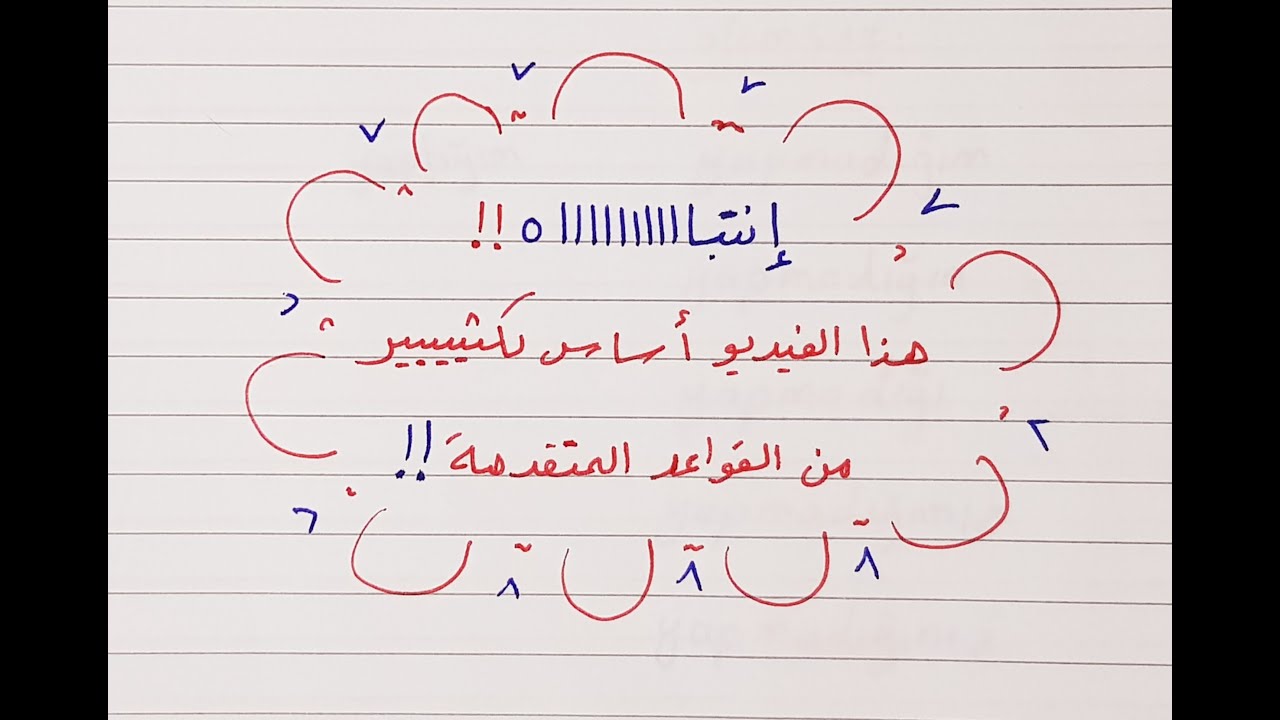 إنتبااااااااااه !!
هذا الفيديو أساس لكثيييير
من القواعد المتقدمة !!